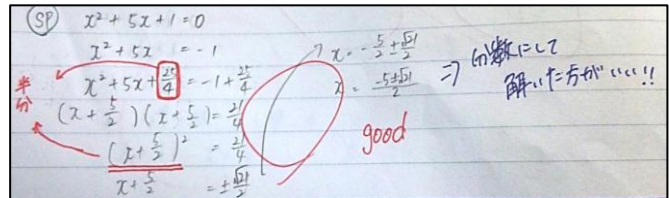 SP x² + 5x + 1 = 0
x² + 5x = -1
x² + 5x + 25/4 = -1 + 25/4
半分
(x + 5/2)(x + 5/2) = 21/4
(x + 5/2)² = 21/4
x + 5/2 = ±√21/2
x = -5/2 ± √21/2
x = -5±√21/2
good
⇒ 分数にして
解いた方がいい!!